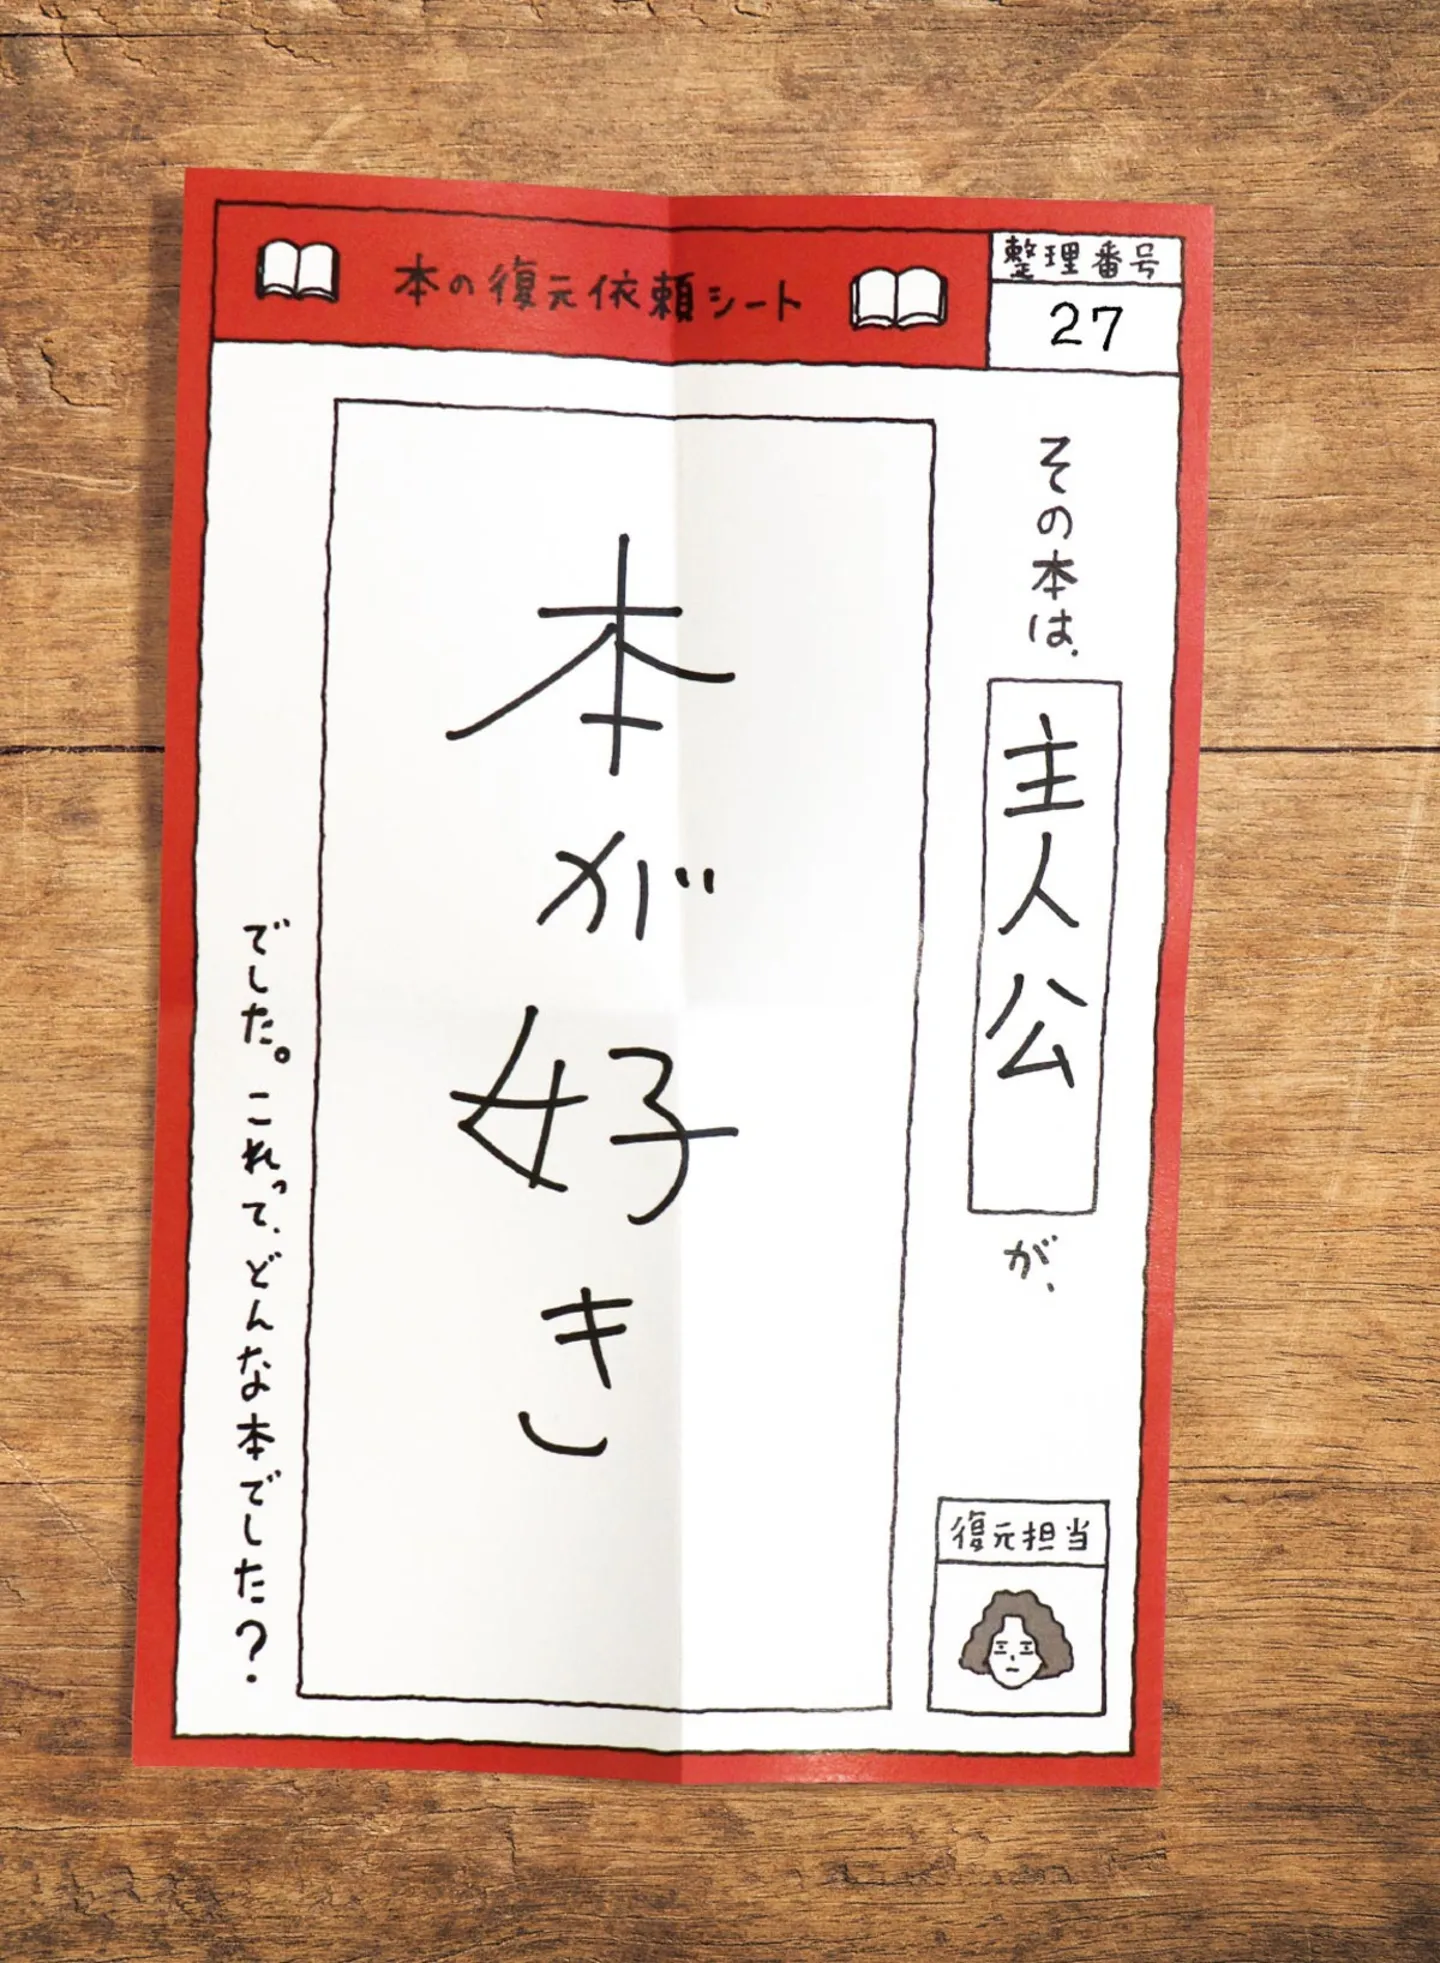 本の復元依頼シート
整理番号
27
その本は、
主人公
が、
本が好き
でした。これって、どんな本でした？
復元担当